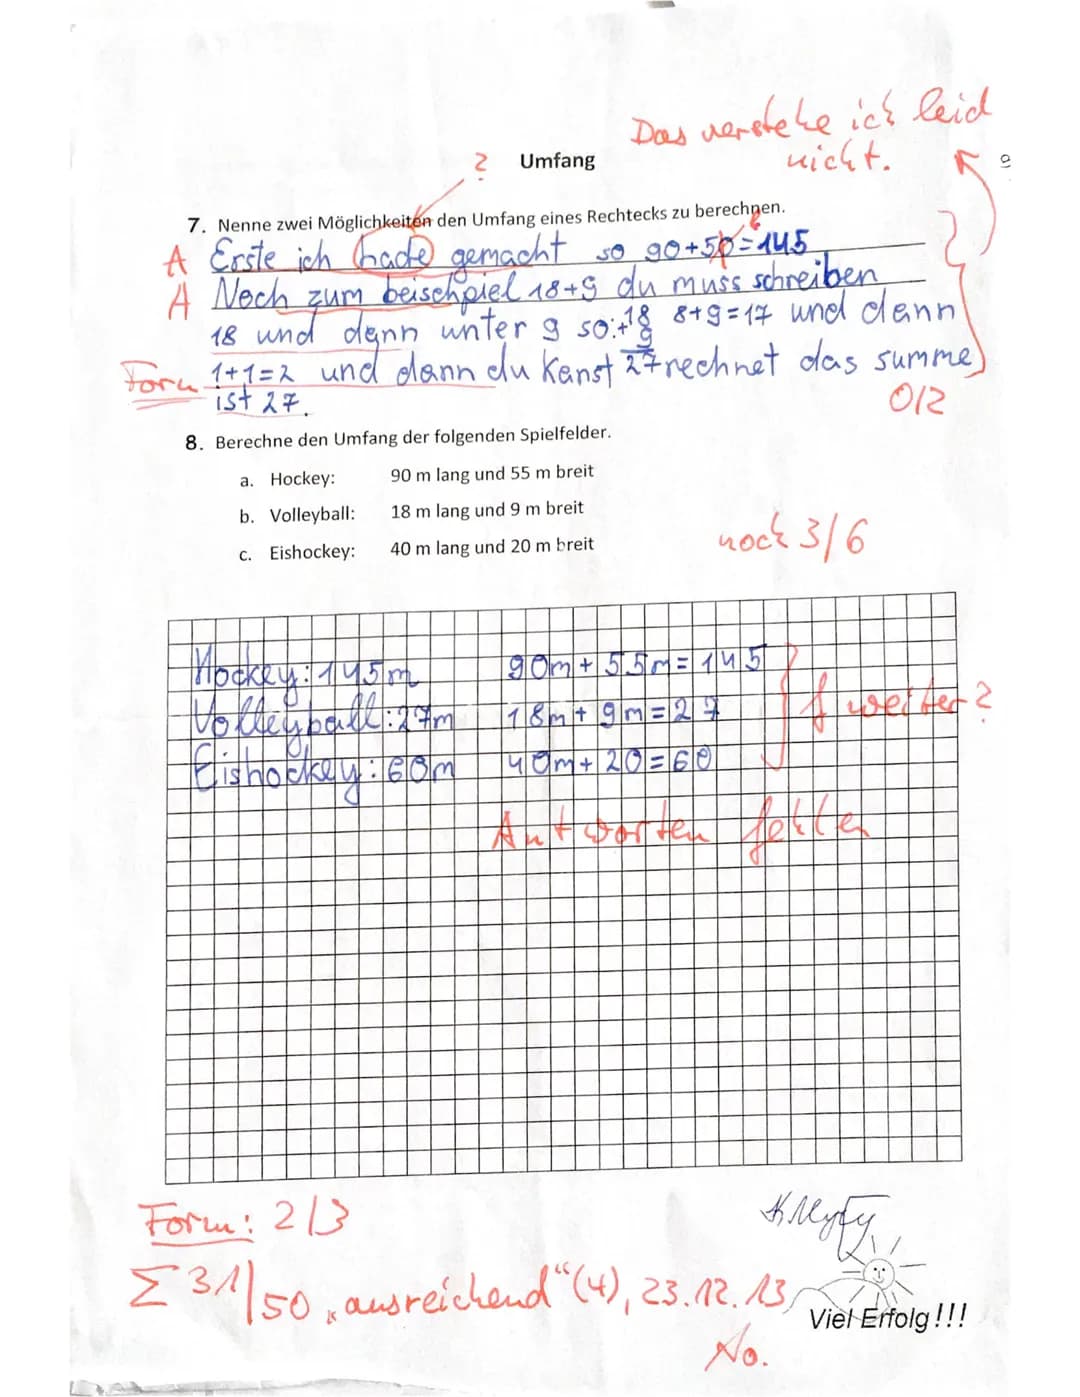 Das verstehe ich leid
nicht.
? Umfang
7. Nenne zwei Möglichkeiten den Umfang eines Rechtecks zu berechnen.
A Erste ich hade gemacht so 90+50=145
A Noch zum beischpiel 18+9 du muss schreiben
18 und dann unter 9 so:+18 8+9=17 und dann
9
Form 1+1=2 und dann du kanst 27 rechnet das summe
ist 27.
0/2
8. Berechne den Umfang der folgenden Spielfelder.
a. Hockey: 90 m lang und 55 m breit
b. Volleyball: 18 m lang und 9 m breit
noch 3/6
c. Eishockey: 40 m lang und 20 m breit
Hockey: 145m 90m + 55m = 145
Volleyball: 27m 18m + 9m = 27 weiter?
Eishockey: 60m 40m + 20 = 60
Antworten fehlen
Form: 2/3
Σ 31/50 „ausreichend“ (4), 23.12.13
Viel Erfolg!!!
No.